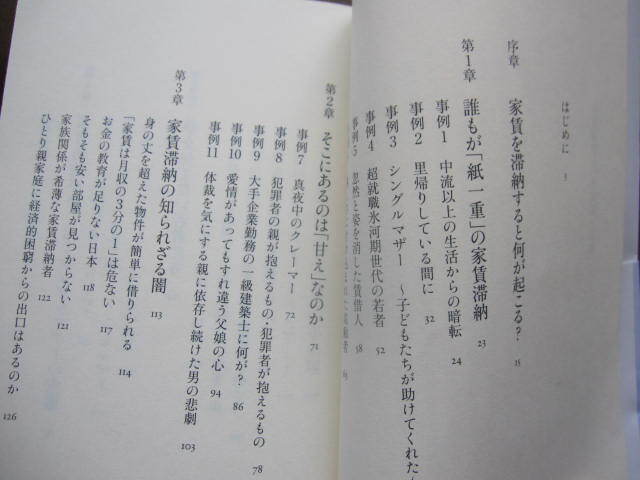 はじめに 3
序章 家賃を滞納すると何が起こる? 15
第1章 誰もが「紙一重」の家賃滞納 23
事例1 中流以上の生活からの暗転 24
事例2 里帰りしている間に 32
事例3 シングルマザー ～子どもたちが助けてくれた
事例4 超就職氷河期世代の若者 52
事例5 忽然と姿を消した賃借人 58
第2章 そこにあるのは「甘え」なのか 71
事例7 真夜中のクレーマー 72
事例8 犯罪者の親が抱えるもの・犯罪者が抱えるもの 78
事例9 大手企業勤務の一級建築士に何が? 86
事例10 愛情があってもすれ違う父娘の心 94
事例11 体裁を気にする親に依存し続けた男の悲劇 103
第3章 家賃滞納の知られざる闇 113
身の丈を超えた物件が簡単に借りられる 114
「家賃は月収の3分の1」は危ない 117
お金の教育が足りない日本 118
そもそも安い部屋が見つからない 121
家族関係が希薄な家賃滞納者 122
ひとり親家庭に経済的困窮からの出口はあるのか 126